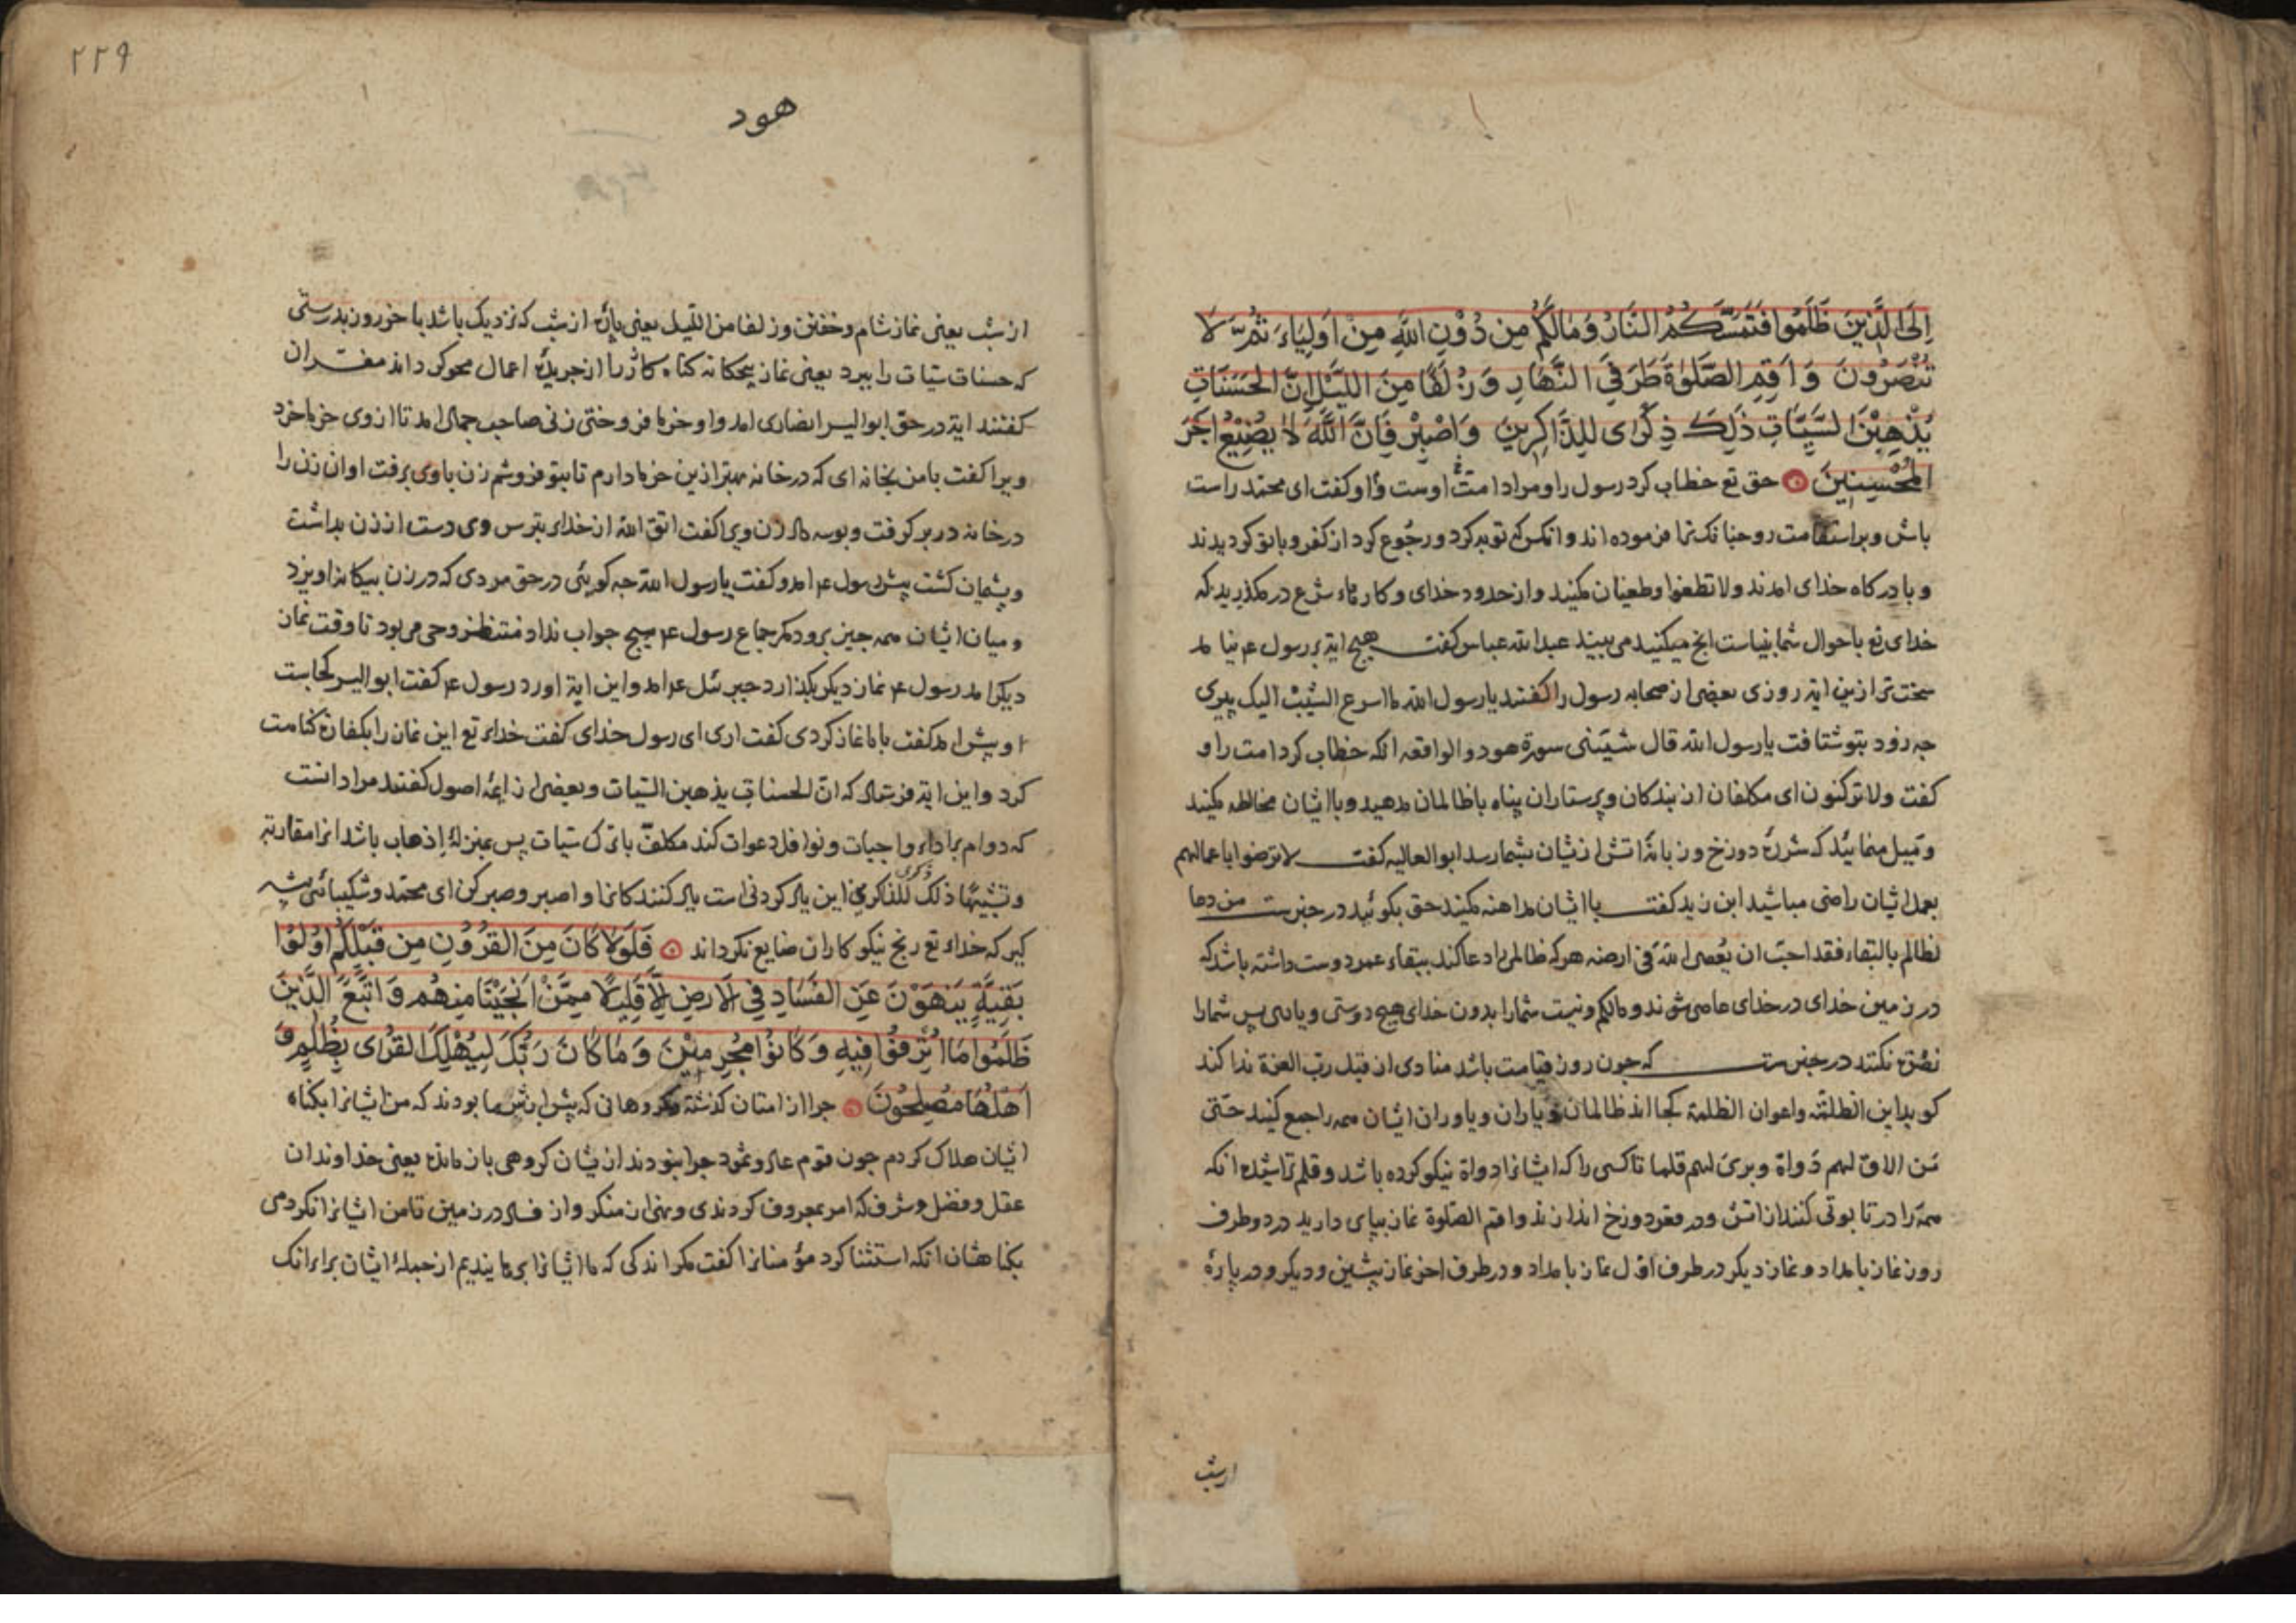 إِلَى الَّذِينَ ظَلَمُوا فَتَمَسَّكُمُ النَّارُ وَمَالَكُمْ مِن دُوْنِ اللَّهِ مِنْ اَوْلِيَاءَ ثُمَّ لَا
تُنْصَرُونَ وَاَقِمِ الصَّلٰوةَ طَرَفَيِ النَّهَارِ وَزُلَفًا مِنَ اللَّيْلِ اِنَّ الْحَسَنَاتِ
يُذْهِبْنَ السَّيِّاٰتِ ذَلِكَ ذِكْرٰى لِلذَّاكِرِينَ وَاصْبِرْ فَاِنَّ اللَّهَ لَا يُضِيْعُ اَجْرَ
الْمُحْسِنِينَ حق تع خطاب کرد رسول را و مراد امت اوست و او کفت ای محمد راست
باش و براستقامت رو چنانک ترا فرموده اند و انکس که توبه کرد و رجوع کرد از کفر و با تو کردیدند
و با درکاه خدای امدند ولا تطغوا و طغیان مکنید و از حدود خدای و کارهاء شرع در مکذرید که
خدای تع باحوال شما بیناست انچ میکنید می بیند عبد الله عباس کفت هیچ ایة بر رسول ع نیامد
سخت تر ازین ایة روزی بعضی از صحابه رسول را کفتند یا رسول الله ما اسرع الشیب الیک پیری
چه زود بتو شتافت یا رسول الله قال شیبتنی سورة هود و الواقعه انکه خطاب کرد امت را و
کفت ولا ترکنوا ای مکلفان از بندکان و پرستاران پناه با ظالمان مدهید و با ایشان مخالطه مکنید
و میل منمائید که شررۀ دوزخ و زبانۀ اتش ازیشان بشما رسد ابو العالیه کفت لا ترضوا باعمالهم
بعمل ایشان راضی مباشید ابن زید کفت با ایشان مداهنه مکنید حق بکوئید در خبرست من دعا
لظالم بالبقاء فقد احب ان یعصی الله فی ارضه هر که ظالمی را دعا کند ببقاء عمر دوست داشته باشد که
در زمین خدای در خدای عاصی شوند و مالکم و نیست شما را بدون خدای هیچ دوستی و یاری پس شما را
نصرت نکنند در خبرست که چون روز قیامت باشد منادی از قبل رب العزة ندا کند
کوید این الظلمة و اعوان الظلمة کجا اند ظالمان و یاران و یاوران ایشان همه را جمع کنید حتّی
من الاق لهم دواة و بری لهم قلما تا کسی را که ایشانرا دواة نیکو کرده باشد و قلم تراشیده انکه
همه را در تابوتی کنند از اتش و در قعر دوزخ اندازند و اقم الصلوة نماز بپای دارید در دو طرف
روز نماز بامداد و نماز دیکر در طرف اوّل نماز بامداد و در طرف اخر نماز پیشین و دیکر و در پارۀ
ازشب
۲۲۹
هود
از شب یعنی نماز شام و خفتن و زلفا من اللیل یعنی پارۀ از شب که نزدیک باشد با خر روز بدرستی
که حسنات سیّات را ببرد یعنی نماز پنجکانه کناهکاررا از جریدۀ اعمال محو کرداند مفسران
کفتند ایة در حق ابو الیسر انصاری امد و او خرما فروختی زنی صاحب جمال امد تا از وی خرما خرد
ویرا کفت با من بخانه ای که در خانه بهتر ازین خرما دارم تا بتو فروشم زن با وی برفت او ان زن را
در خانه در بر کرفت و بوسه داد زن ویرا کفت اتق الله از خدای بترس وی دست از زن بداشت
و پشیمان کشت پیش رسول ع امد و کفت یا رسول الله چه کوئی در حق مردی که در زن بیکانه اویزد
و میان ایشان همه چیز برود مکر جماع رسول ع هیچ جواب نداد منتظر وحی می بود تا وقت نماز
دیکر امد رسول ع نماز دیکر بکذارد جبرئیل ع امد و این ایة اورد رسول ع کفت ابو الیسر کجاست
او پیش امد کفت با ما نماز کردی کفت اری ای رسول خدای کفت خدای تع این نماز را بکفارة کناهت
کرد و این ایة فرستاد که انّ الحسنات یذهبن السّیّات و بعضی از ایمۀ اصول کفتند مراد انست
که دوام بر اداء واجبات و نوافل دعوات کند مکلف با ترک سیّات پس بمنزلۀ اذهاب باشد
ذلک ذکری للذاکرین این یاد کردنی است یاد کنندکانرا و اصبر و صبر کن ای محمد و شکیبائی پیشه
کیر که خدای تع رنج نیکوکاران ضایع نکرداند فَلَوْلَا كَانَ مِنَ الْقُرُوْنِ مِن قَبْلِكُمْ اُولُوْا
بَقِيَّةٍ يَنهَوْنَ عَنِ الْفَسَادِ فِي الْاَرْضِ اِلَّا قَلِيلًا مِمَّنْ اَنْجَيْنَا مِنهُم وَاتَّبَعَ الَّذِينَ
ظَلَمُوا مَا اُتْرِفُوْا فِيهِ وَكَانُوْا مُجْرِمِيْنَ وَمَا كَانَ رَبُّكَ لِيُهْلِكَ الْقُرٰى بِظُلْمٍ وَ
اَهْلُهَا مُصْلِحُوْنَ چرا از امتان کذشته و کروهانی که پیش از شما بودند که من ایشانرا بکناه
ایشان هلاک کردم چون قوم عاد و ثمود چرا نبودند ازیشان کروهی باز مانده یعنی خداوندان
عقل و فضل و شرف که امر بمعروف کردندی و نهی از منکر و از فساد در زمین تا من ایشانرا نکردمی
بکناهشان انکه استثنا کرد مؤمنانرا کفت مکر اندکی که ما ایشانرا برهانیدیم از جملۀ ایشان برای انک